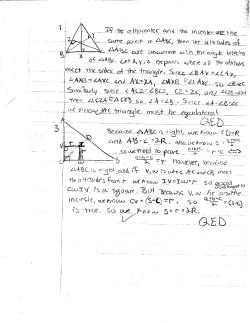 1
If the orthocenter and the incenter are the
same point in △ABC, then the altitudes of
△ABC are concurrent with the angle bisectors
of △ABC. Let X, Y, Z, be points where all the altitudes
meet the sides of the triangle. Since ∠BAX = ∠CAX,
∠AXB = ∠AXC and AX = XA, △AXB ≅ △AXC. So ∠B = ∠C
Similarly since ∠ACZ = ∠BCZ, CZ = ZC, and
then so ∠A = ∠B. Since ∠A = ∠B = ∠C
we know the triangle must be equilateral
QED
3
Because △ABC is right, we know CD = R
and AB = c = 2R. also we know S =
so we need to prove = r
= r however, because
△ABC is right, and if V, W is where AC and CB meet
the altitudes from r. we know IV = IW = r so
CWIV is a square. But because V, W, lie on the
incircle, we know CV = (s-c) = r. so = (s-c)
is true. So we know S = r + 2R.
QED